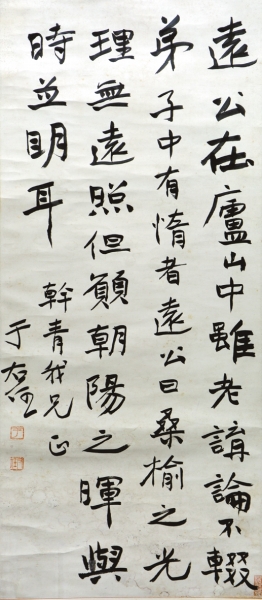 遠公在廬山中雖老講論不輟
弟子中有惰者遠公曰桑榆之光
理無遠照但願朝陽之暉與
時並明耳
幹青我兄正
于右任